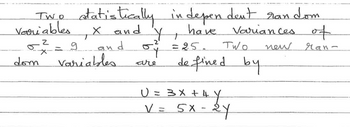 Two statistically independent random
variables, X and Y, have variances of
σ²ₓ = 9 and σ²ᵧ = 25. Two new ran-
dom variables are defined by
U = 3X + 4Y
V = 5X - 2Y